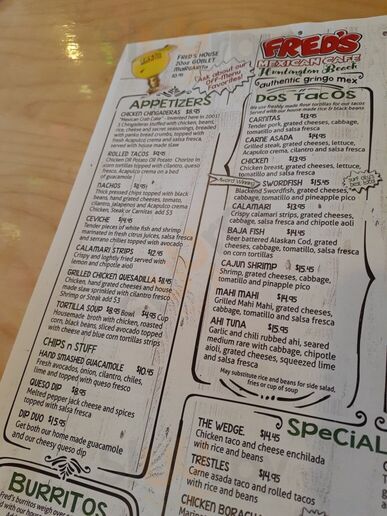 FRED'S HOUSE
20oz GOBLET
MARGARITA
FRED'S
MEXICAN CAFE
Huntington Beach
authentic gringo mex
Ask about our
Off-Menu
Favorites!
APPETIZERS
CHICKEN CHINGADERAS
"Mexican Crab Cake" - invented here in 2001!
Chingaderas stuffed with chicken, beans,
rice, cheese and secret seasonings, breaded
with panko bread crumbs, topped with
fresh Acapulco crema and salsa fresca,
served with house made slaw
ROLLED TACOS
Chicken OR Potato OR Potato Chorizo in
corn tortillas topped with cilantro, queso
fresco, Acapulco crema on a bed
of guacamole
NACHOS
Thick pressed chips topped with black
beans, hand grated cheeses, tomato,
cilantro, jalapenos and Acapulco Crema
Chicken, Steak or Carnitas add $3
CEVICHE $14.95
Tender pieces of white fish and shrimp
marinated in fresh citrus juices, salsa fresca
and serrano chilies topped with avocado
CALAMARI STRIPS $12.95
Crispy and lightly fried served with
lemon and chipotle aioli
GRILLED CHICKEN QUESADILLA
Chicken, hand grated cheeses and house
made slaw sprinkled with cilantro fresco
Shrimp or Steak add $3
TORTILLA SOUP $8.95 Bowl $4.95 Cup
Housemade broth with chicken, roasted
corn, black beans, sliced avocado topped
with cheese and blue corn tortillas strips
CHIPS n STUFF
HAND SMASHED GUACAMOLE $10.95
Fresh avocados, onion, cilantro, chiles,
lime and topped with queso fresco
QUESO DIP $8.95
Melted pepper jack cheese and spices
topped with salsa fresca
DIP DUO $15.95
Get both our home made guacamole
and our cheesy queso dip
BURRITOS
Fred's burritos weigh over
DOS TACOS
We use freshly made flour tortillas for our tacos
served with our house made rice & black beans
CARNITAS $13.95
Tender pork, grated cheeses, cabbage,
tomatillo and salsa fresca
CARNE ASADA $14.95
Grilled steak, grated cheeses, lettuce,
Acapulco crema, cilantro and salsa fresca
CHICKEN $13.95
Chicken breast, grated cheeses, lettuce,
tomatillo and salsa fresca
Award Winning
SWORDFISH $15.95
Blackened Swordfish, grated cheeses,
cabbage, tomatillo and pineapple pico
CALAMARI $13.95
Crispy calamari strips, grated cheeses,
cabbage, salsa fresca and chipotle aioli
BAJA FISH $14.95
Beer battered Alaskan Cod, grated
cheeses, cabbage, tomatillo, salsa fresca
on corn tortillas
CAJUN SHRIMP $15.95
Shrimp, grated cheeses, cabbage,
tomatillo and pinapple pico
MAHI MAHI $14.95
Grilled Mahi Mahi, grated cheeses,
cabbage, tomatillo, salsa fresca
AHI TUNA $15.95
Garlic and chili rubbed ahi, seared
medium rare with cabbage, chipotle
aioli, grated cheeses, squeezed lime
and salsa fresca
May substitute rice and beans for side salad,
fries or cup of soup
SPECIAL
THE WEDGE. $14.95
Chicken taco and cheese enchilada
with rice and beans
TRESTLES $14.95
Carne asada taco and rolled tacos
with rice and beans
CHICKEN BORACH